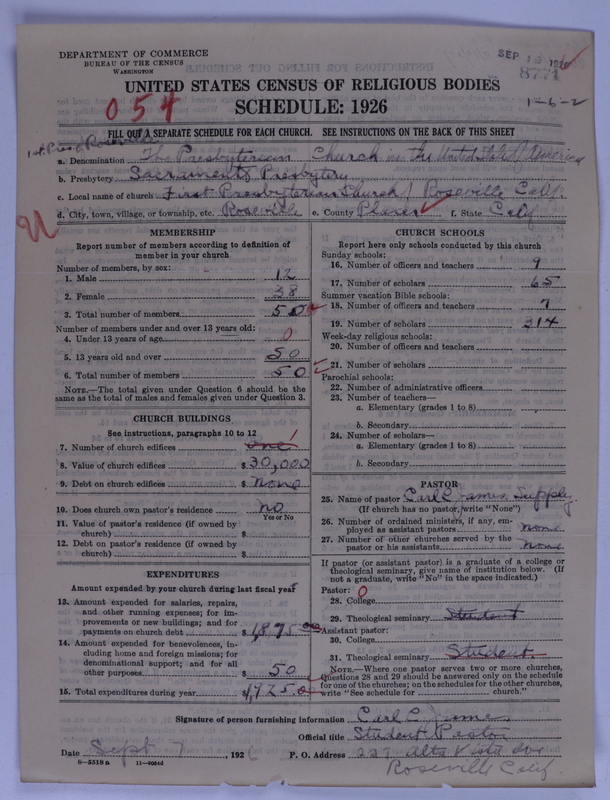 DEPARTMENT OF COMMERCE
BUREAU OF THE CENSUS
WASHINGTON
SEP 13 1926
8771
UNITED STATES CENSUS OF RELIGIOUS BODIES
SCHEDULE: 1926
054
1-6-2
FILL OUT A SEPARATE SCHEDULE FOR EACH CHURCH. SEE INSTRUCTIONS ON THE BACK OF THIS SHEET
1st Presb Roseville
a. Denomination The Presbyterian Church in the United States of America
b. Presbytery Sacramento Presbytery
c. Local name of church First Presbyterian Church / Roseville Calif.
d. City, town, village, or township, etc. Roseville e. County Placer f. State Calif
MEMBERSHIP
Report number of members according to definition of
member in your church
Number of members, by sex:
1. Male 12
2. Female 38
3. Total number of members 50
Number of members under and over 13 years old:
4. Under 13 years of age 0
5. 13 years old and over 50
6. Total number of members 50
NOTE.—The total given under Question 6 should be
the same as the total of males and females given under Question 3.
CHURCH BUILDINGS
See instructions, paragraphs 10 to 12
7. Number of church edifices one 1
8. Value of church edifices $30,000
9. Debt on church edifices $ None
10. Does church own pastor's residence no
Yes or No
11. Value of pastor's residence (if owned by
church) $
12. Debt on pastor's residence (if owned by
church) $
EXPENDITURES
Amount expended by your church during last fiscal year
13. Amount expended for salaries, repairs,
and other running expenses; for im-
provements or new buildings; and for
payments on church debt $ 1,875.00
14. Amount expended for benevolences, in-
cluding home and foreign missions; for
denominational support; and for all
other purposes $ 50
15. Total expenditures during year $1,925.00
CHURCH SCHOOLS
Report here only schools conducted by this church
Sunday schools:
16. Number of officers and teachers 9
17. Number of scholars 65
Summer vacation Bible schools:
18. Number of officers and teachers 7
19. Number of scholars 314
Week-day religious schools:
20. Number of officers and teachers
21. Number of scholars
Parochial schools:
22. Number of administrative officers
23. Number of teachers—
a. Elementary (grades 1 to 8)
b. Secondary
24. Number of scholars—
a. Elementary (grades 1 to 8)
b. Secondary
PASTOR
25. Name of pastor Carl C James, Supply
(If church has no pastor, write "None")
26. Number of ordained ministers, if any, em-
ployed as assistant pastors None
27. Number of other churches served by the
pastor or his assistants None
If pastor (or assistant pastor) is a graduate of a college or
theological seminary, give name of institution below. (If
not a graduate, write "No" in the space indicated.)
Pastor: 0
28. College
29. Theological seminary Student
Assistant pastor:
30. College
31. Theological seminary Student
NOTE.—Where one pastor serves two or more churches,
Questions 28 and 29 should be answered only on the schedule
for one of the churches; on the schedules for the other churches,
write "See schedule for church."
Signature of person furnishing information Carl C. James
Official title Student Pastor
Date Sept 7, 1926 P. O. Address 227 Alta Vista Ave
8-5518a 11-9054d
Roseville Calif.